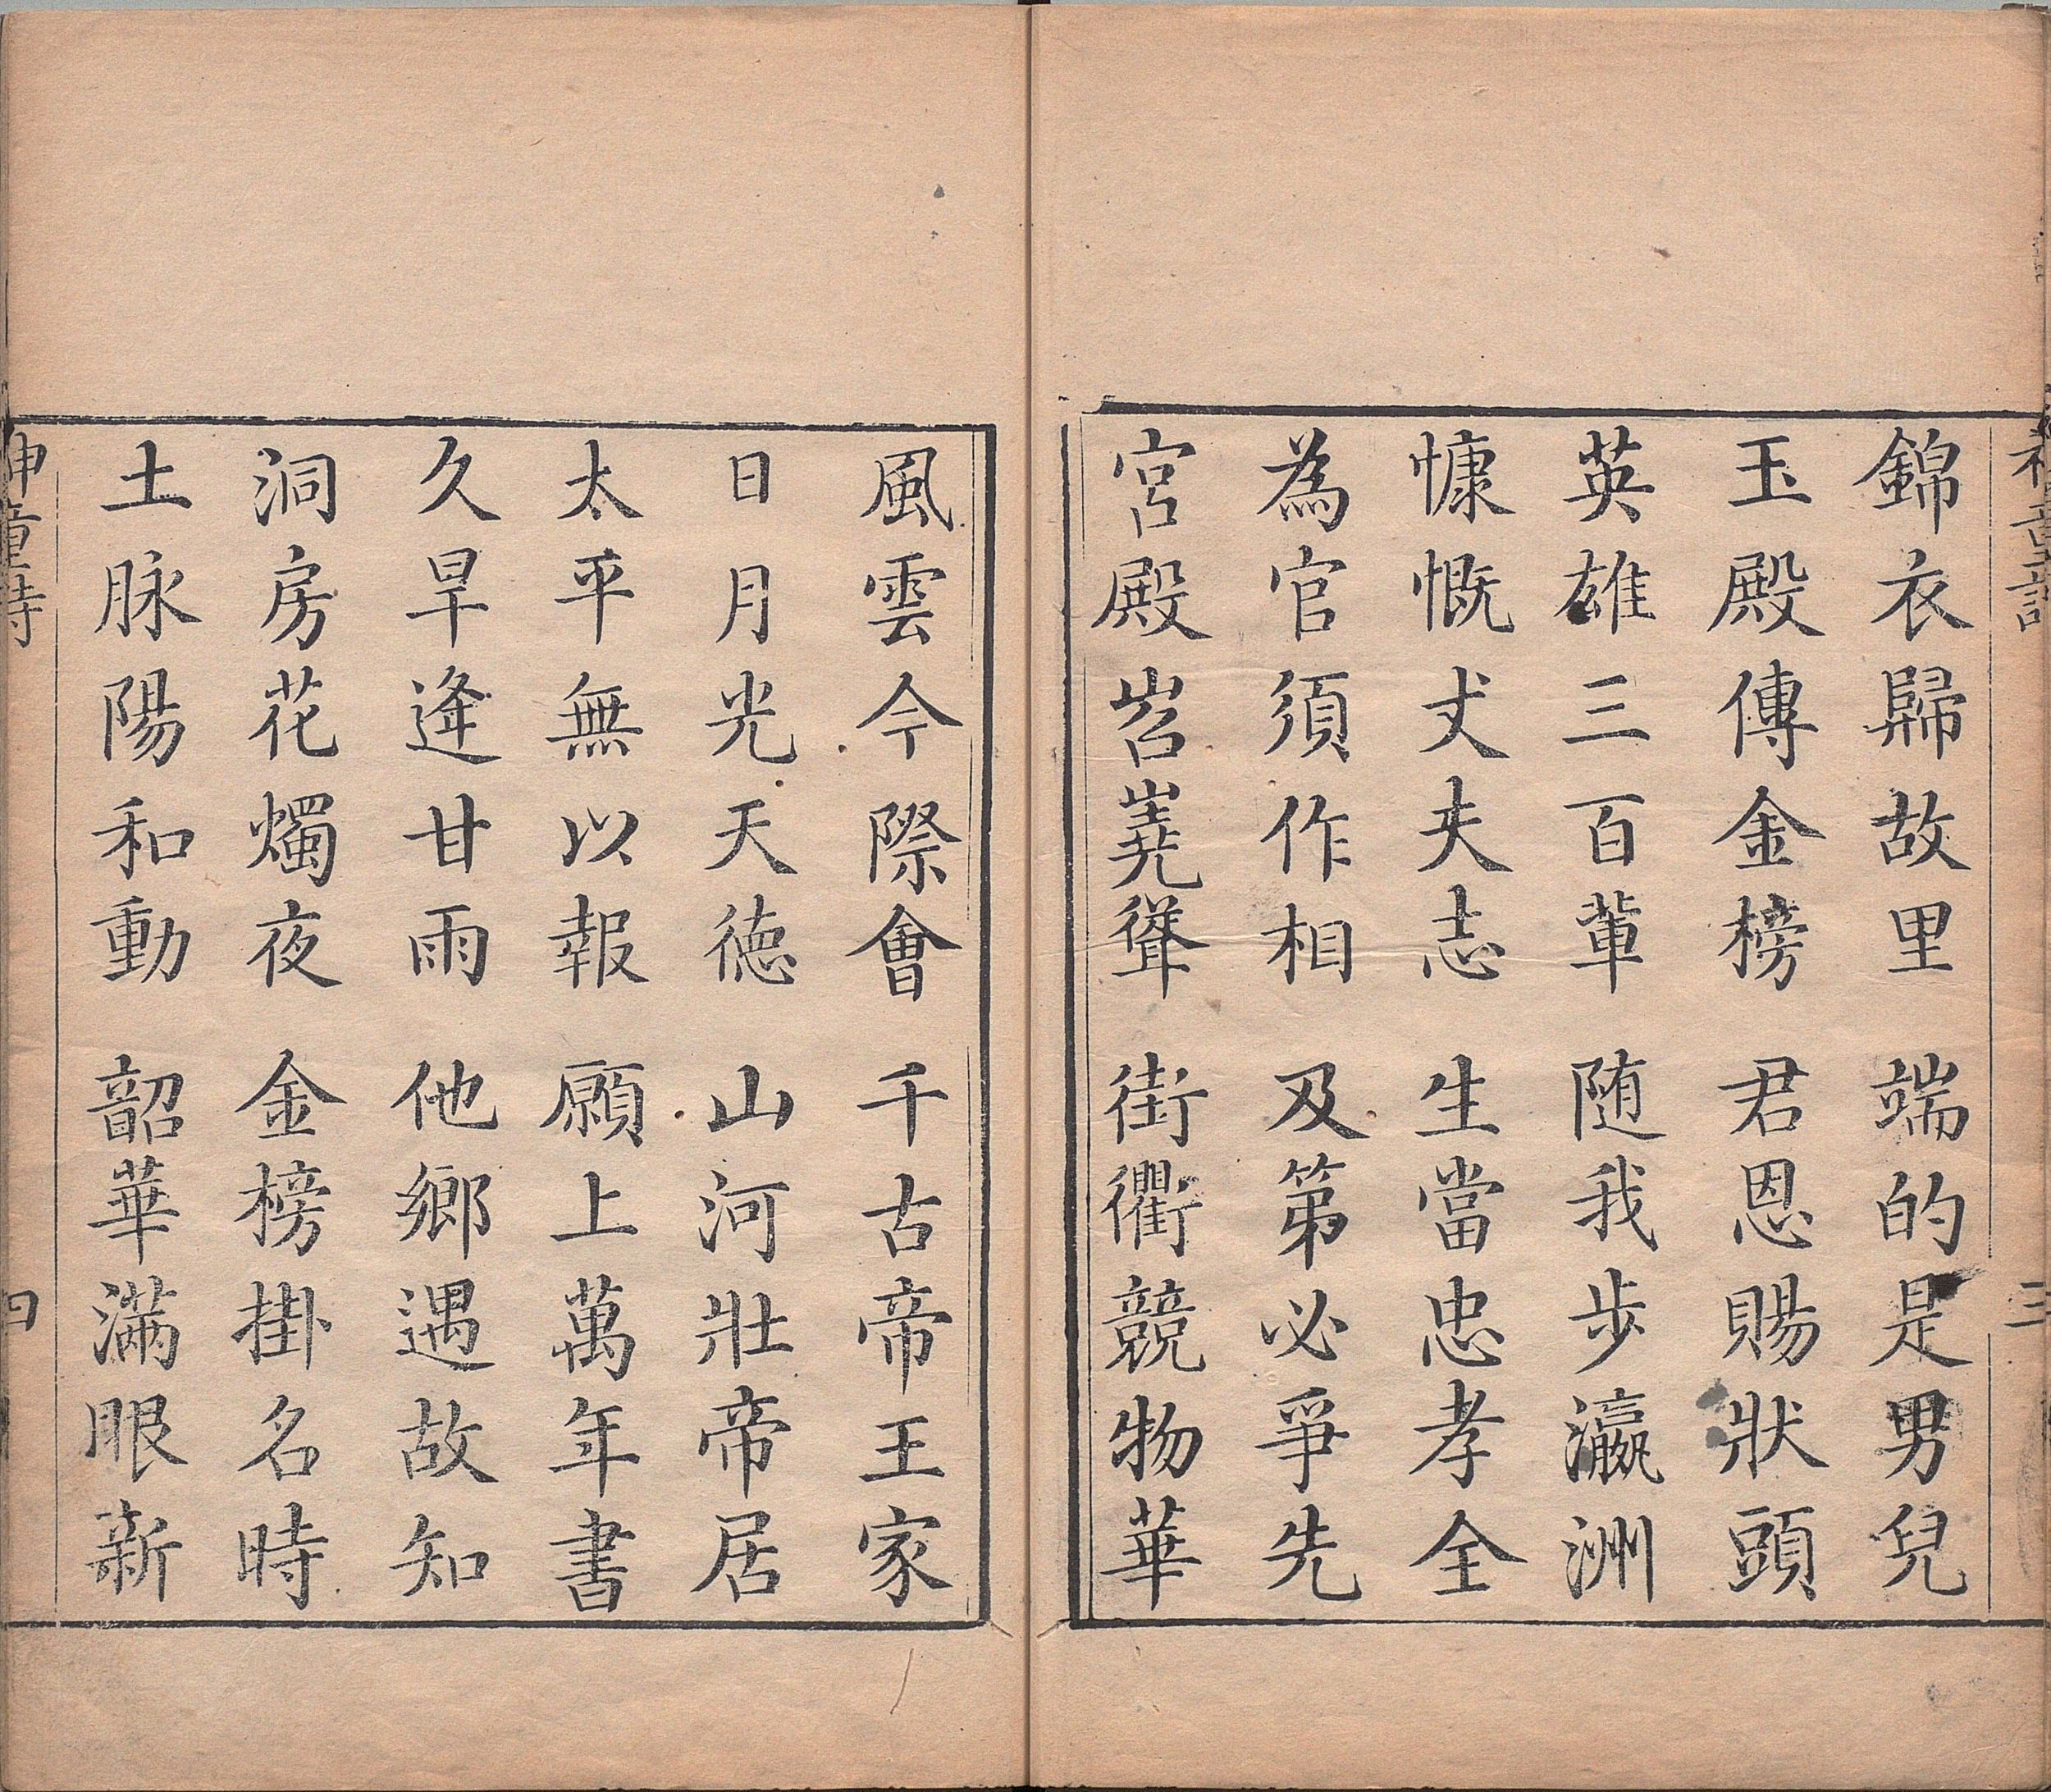 神童詩
三
錦衣歸故里 端的是男兒
玉殿傳金榜 君恩賜狀頭
英雄三百軰 随我步瀛洲
慷慨丈夫志 生當忠孝全
為官須作相 及第必爭先
宮殿岧嶤聳 街衢競物華
風雲今際會 千古帝王家
日月光天德 山河壯帝居
太平無以報 願上萬年書
久旱逢甘雨 他鄉遇故知
洞房花燭夜 金榜掛名時
土脉陽和動 韶華滿眼新
神童詩
四